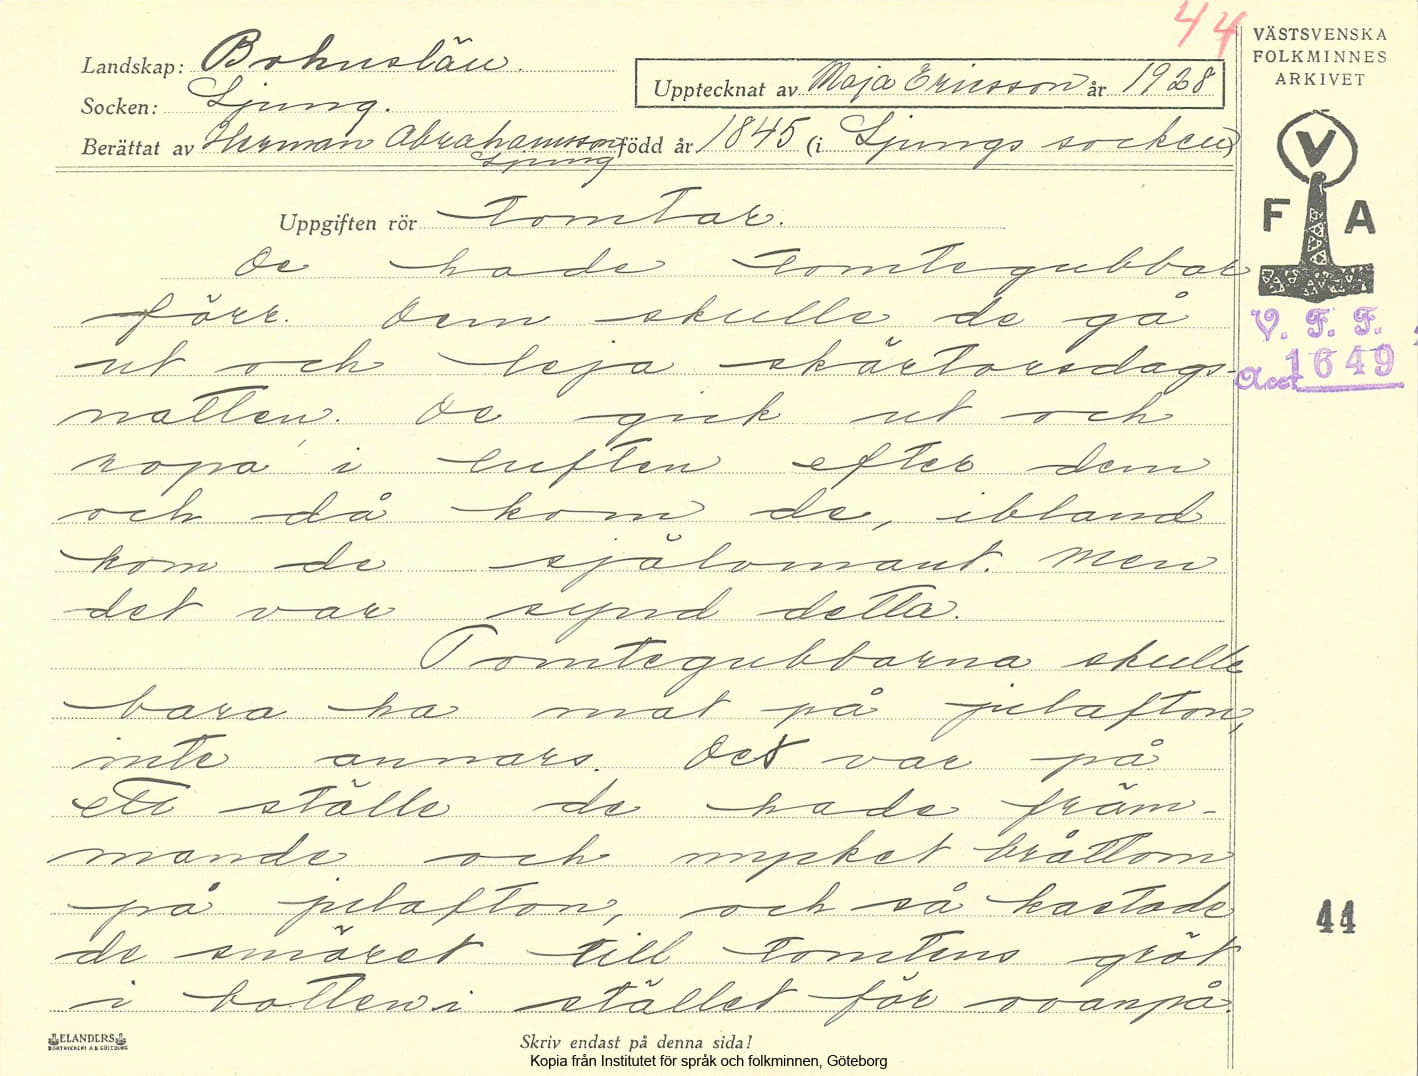 44
VÄSTSVENSKA
FOLKMINNES
ARKIVET
Landskap: Bohuslän.
Socken: Ljung.
Upptecknat av Maja Ericsson år 1928
Berättat av Herman Abrahamsson född år 1845 (i Ljungs socken)
Ljung
V
F A
V. F. F.
Acc 1649
Uppgiften rör Tomtar.
De hade tomtegubbar
förr. Dem skulle de gå
ut och leja skärtorsdags-
natten. De gick ut och
ropa i luften efter dem
och då kom de, ibland
kom de självmant. Men
det var synd detta.
Tomtegubbarna skulle
bara ha mat på julafton,
inte annars. Det var på
ett ställe de hade främ-
mande och mycket bråttom
på julafton, och så kastade
de smöret till tomtens gröt
i botten i stället för ovanpå.
44
ELANDERS
BOKTRYCKERI A.B. GÖTEBORG
Skriv endast på denna sida!
Kopia från Institutet för språk och folkminnen, Göteborg